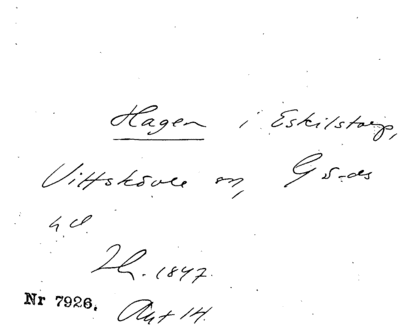 Hagen i Eskilstorp,
Vittskövle sn, Gärds
hd.
Lh. 1847.
Nr 7926. Akt 14.